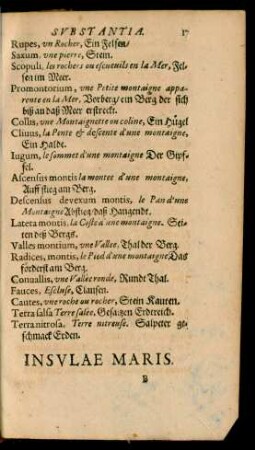 SVBSTANTIA. 17
Rupes, vn Rocher, Ein Felsen/
Saxum. vne pierre, Stein.
Scopuli, les rochers ou escueuils en la Mer, Fel-
sen im Meer.
Promontorium, vne Petite montaigne appa-
rente en la Mer, Vorberg/ ein Berg der sich
biß an daß Meer erstreckt.
Collis, vne Montaignette ou coline, Ein Hügel
Cliuus, la Pente & descente d'une montaigne,
Ein Halde.
Iugum, le sommet d'une montaigne Der Gipf-
fel.
Ascensus montis la montee d'une montaigne,
Auff stieg am Berg.
Descensus devexum montis, le Pan d'une
Montaigne Abstieg/ daß Hangende.
Latera montis, la Coste d'une montaigne. Sei-
ten deß Bergs.
Valles montium, vne Vallee. Thal der Berg.
Radices, montis, le Pied d'une montaigne, Das
förderst am Berg.
Conuallis, vne Vallee ronde, Rundt Thal.
Fauces, Escluse, Clausen.
Cautes, vne roche ou rocher, Stein Kauten.
Terra salsa Terre salee, Gesaltzen Erdereich.
Terra nitrosa. Terre nitreuse. Salpeter ge-
schmack Erden.
INSVLAE MARIS.
B